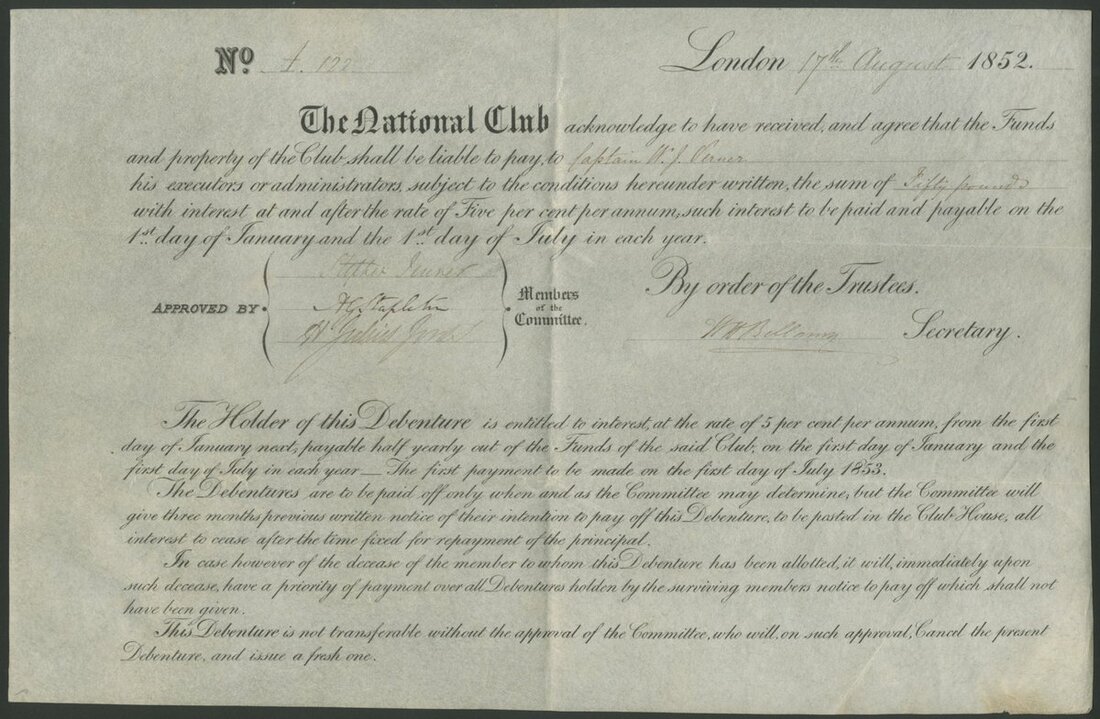 No. 122
London 17th August 1852.
The National Club acknowledge to have received, and agree that the Funds
and property of the Club shall be liable to pay, to Captain W. J. Verner
his executors or administrators, subject to the conditions hereunder written, the sum of Fifty pounds
with interest at and after the rate of Five per cent per annum, such interest to be paid and payable on the
1st day of January and the 1st day of July in each year.
APPROVED BY
A G Stapleton
Members
of the
Committee.
By order of the Trustees.
W H Bellamy Secretary.
The Holder of this Debenture is entitled to interest, at the rate of 5 per cent per annum, from the first
day of January next, payable half yearly out of the Funds of the said Club, on the first day of January and the
first day of July in each year — The first payment to be made on the first day of July 1853.
The Debentures are to be paid off only when and as the Committee may determine, but the Committee will
give three months previous written notice of their intention to pay off this Debenture, to be posted in the Club House, all
interest to cease after the time fixed for repayment of the principal.
In case however of the decease of the member to whom this Debenture has been allotted, it will, immediately upon
such decease, have a priority of payment over all Debentures holden by the surviving members notice to pay off which shall not
have been given.
This Debenture is not transferable without the approval of the Committee, who will, on such approval, Cancel the present
Debenture, and issue a fresh one.